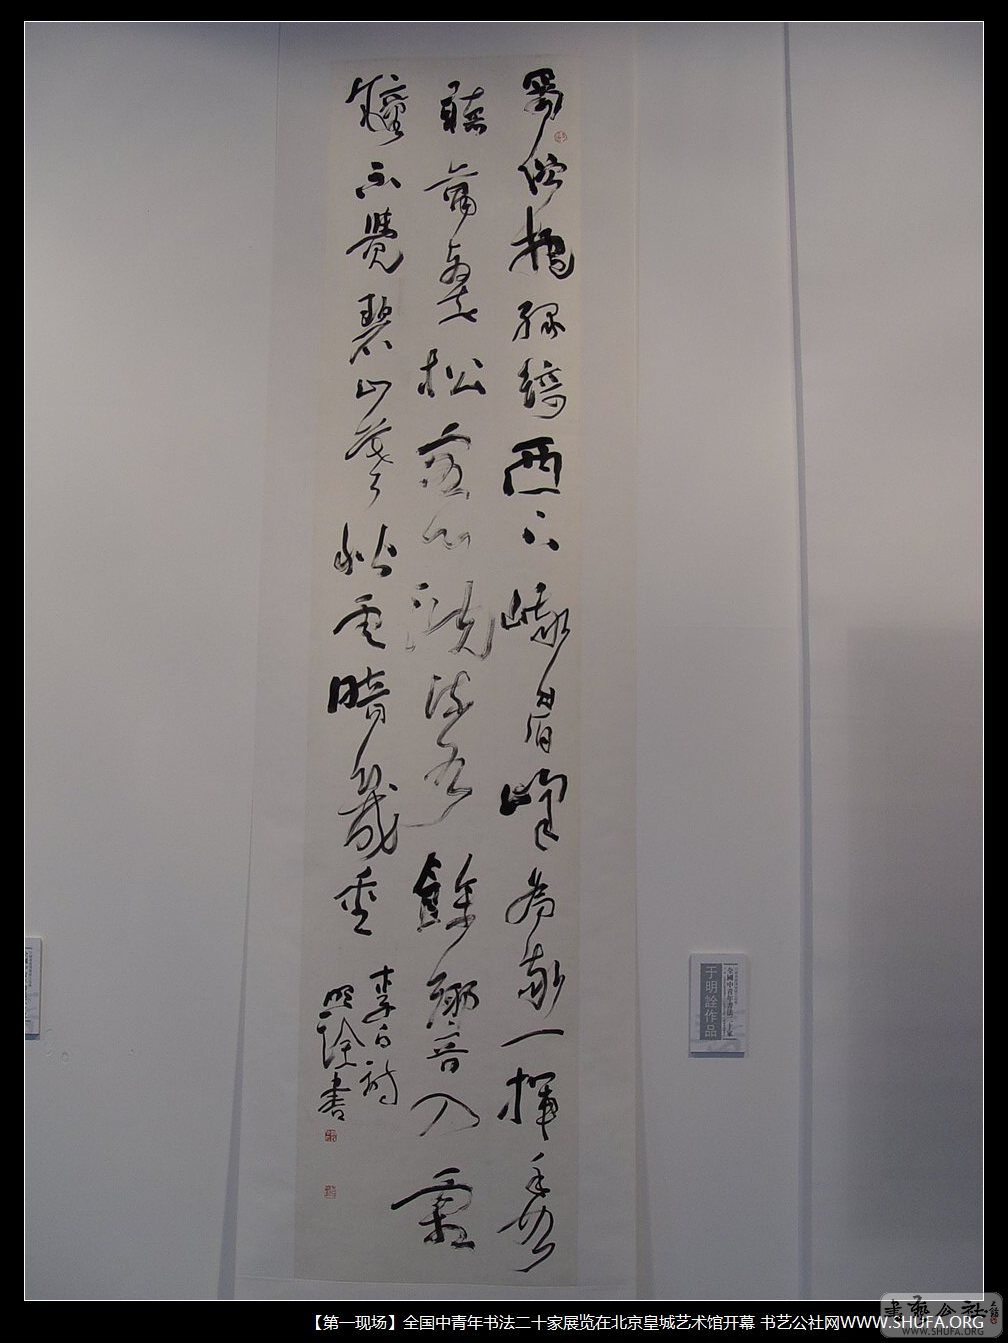 蜀僧抱綠綺西下峨眉峰為我一揮手如
聽萬壑松客心洗流水餘響入霜
鐘不覺碧山暮秋雲暗幾重
李白詩
明詮書
全國中青年書法二十家
于明詮作品
書艺公社
WWW.SHUFA.ORG
【第一现场】全国中青年书法二十家展览在北京皇城艺术馆开幕 书艺公社网WWW.SHUFA.ORG